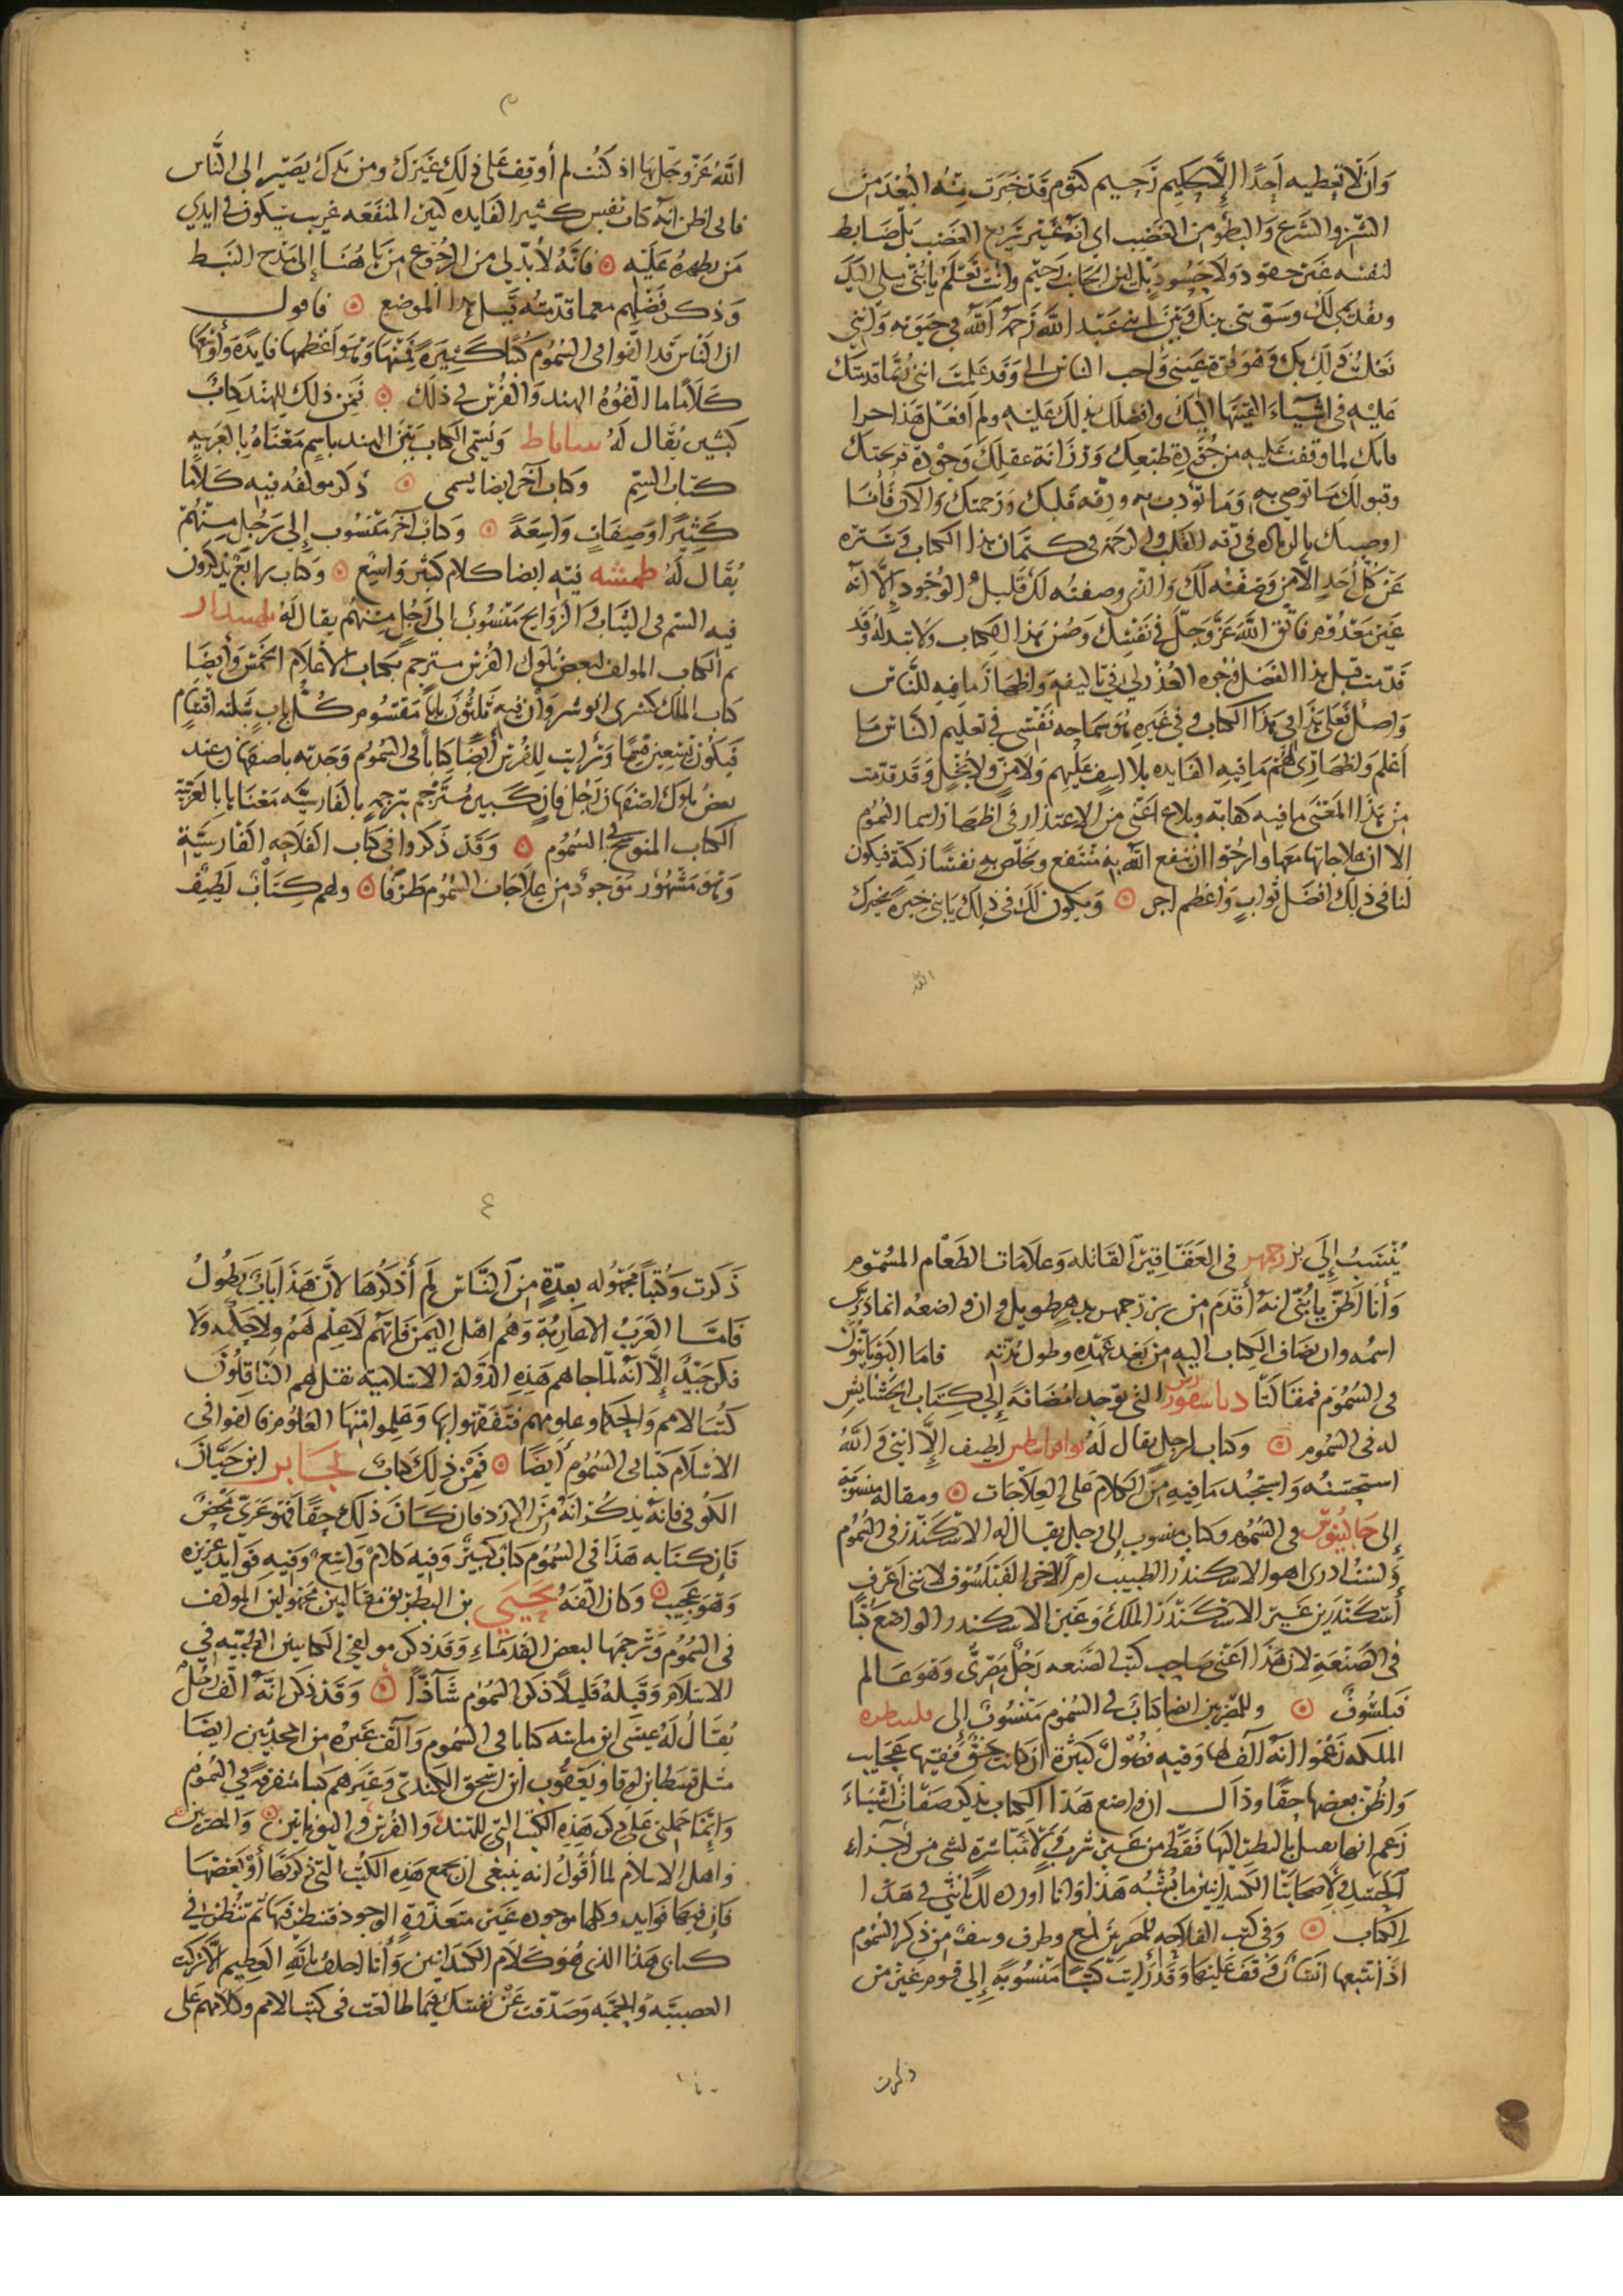 وَان لا تعطيه أحدًا إلّا حكيم رحيم كتوم قد خبرت منه البعد من
الشر والتسرع والبطو من الغضب اي انه غير سريع الغضب بل ضابط
لنفسه غير حقود ولا حسود بل لين الجانب رحيم وانت تعلم يا بني ميلي اليك
لك وبين ابني عبد الله رحمه الله في حيوته وانني
فعلت ذلك بك وهو قرة عيني واحب الناس الي وقد علمت انني قدمتك
عليه في اشياء القيتها اليك وافضلك بذلك عليه ولم افعل هذا جزا
مانك لما وقفت عليه من جودة طبعك ورزانة عقلك وجودة قريحتك
وقبولك ما توصي به وما تؤدب به ورقه قلبك ورحمتك والآن فأنا
اوصيك بالزياده في رقه القلب والرحمة في كتمان هذا الكتاب وستره
عن كل أحد إلا من وصفته لك والذي وصفته لك قليل الوجود إلّا انه
غير معدوم فاتق الله عز وجل في نفسك وصن هذا الكتاب ولا تبدله وقد
قدمت قبل هذا الفصل وجوه العذر لي في تاليفه واظهار ما فيه للناس
واصل فعلي هذا في هذا الكتاب وفي غيره هو سماحه نفسي في تعليم الناس ما
اعلم واظهاري لهم ما فيه الفايده بلا اسف عليهم ولا من ولا بخل وقد قدمت
من هذا المعنى ما فيه كفاية وبلاغ اغنى من الاعتذار في اظهار اسما السموم
الا ان علاجاتها معها وارجوا ان ينفع الله به منتفع ويخلص به نفسا زكية فيكون
لنا في ذلك افضل ثواب واعظم اجر ⊙ ويكون لك في ذلك يا بني خيرة يخيرك
الله
٣
الله عز وجل بها اذ كنت لم أوقف على ذلك غيرك ومن يدك يصير إلى الناس
فاني اظن انه كتاب نفيس كثير الفايده كبير المنفعه غريب سيكون في ايدي
من يظهره عليه ⊙ فانه لا بد لي من الرجوع من هاهنا إلى مدح النبط
وذكر فضلهم مع ما قدمته قبل هذا الموضع ⊙ فاقول
ان الناس قد الفوا في السموم كتبا كثيرة فمنها وهو اعظمها فايدة وأوسعها
كلاما ما الّفوه الهند والفرس في ذلك ⊙ فمن ذلك للهند كتاب
كبير يقال له ساناط ويسمى الكتاب بين الهند باسم معناه بالعربيه
كتاب السم وكتاب آخر ايضا يسمى ⊙ ذكر مولفه فيه كلاما
كثيرا وصفات واسعة ⊙ وكتاب آخر منسوب إلى رجل منهم
يقال له طمشه فيه ايضا كلام كثير واسع ⊙ وكتاب رابع يذكرون
فيه السم في الثياب والروايح منسوب الى رجل منهم يقال له
ثم الكتاب المولف لبعض ملوك الفرس مترجم بكتاب الأعلام الخمس وأيضا
كتاب الملك كسرى انوشروان فيه ثلثون بابا مقسوم كل باب ثلثه اقسام
فيكون تسعين قسما ورأيت للفرس أيضا كتابا في السموم وجدته باصفهان عند
بعض ملوك اصفهان رجل فارسي مترجم بترجمة بالفارسيّة معناها بالعربية
الكتاب المنوجح في السموم ⊙ وقد ذكروا في كتاب الفلاحه الفارسيّة
وهو مشهور موجود من علاجات السموم طرفا ⊙ ولهم كتاب لطيف
يُنسب إلى بزرجمهر في العقاقير القاتله وعلامات الطعام المسموم
وأنا اظن يا بنيّ انه أقدم من بزرجمهر بدهر طويل وان واضعه انما درس
اسمه وان يضاف الكتاب اليه من بعد عهده وطول مدته فاما اليونانيون
في السموم فمقالتا دياسقوريدس التي توجد مضافة إلى كتاب الحشايش
له في السموم ⊙ وكتاب لرجل يقال له لطيف إلّا انني والله
استحسنه واستجيد ما فيه من الكلام على العلاجات ⊙ ومقالة منسوبة
إلى جالينوس في السموم وكتاب منسوب إلى رجل يقال له الاسكندر في السموم
ولست ادري اهو الاسكندر الطبيب ام الاخر الفيلسوف لانني اعرف
اسكندرين غير الاسكندر الملك وغير الاسكندر الواضع كتبا
في الصنعة لان هذا أعني صاحب كتب الصنعه رجل مصري وهو عالم
فيلسوف ⊙ وللمصريين ايضا كتاب في السموم منسوب إلى قلبطره
الملكه زعموا انه الف لها وفيه فصول كثيرة ان كانت حق ففيها عجايب
واظن بعضها حقا وذاك ان واضع هذا الكتاب يذكر صفات اشياء
زعم انها تعمل بالنظر اليها فقط من غير شرب ولا مباشرة لشي من أجزاء
الجسد ولأصحابنا الكسدانيين ما يشبه هذا وانا اورده لك يا بني في هذا
الكتاب ⊙ وفي كتب الفلاحه للمصريين لمع وطرف ونتف من ذكر السموم
اذا تتبعها انسان وقف عليها وقد رايت كتبا منسوبة إلى قوم غير من
ذكرت
٤
ذكرت وكتبا مجهوله بعدّة من الناس لم أذكرها لأن هذا باب يطول
فامّا العرب العاربة وهم اهل اليمن فانهم لا علم لهم ولا حكمه ولا
فكر جيد إلّا انه لما جاهم هذه الدولة الاسلامية نقل لهم الناقلون
كتب الامم والحكما وعلومهم فتفقهوا بها وعلموا منها العلوم فالفوا في
الاسلام كتبا في السموم أيضا ⊙ فمن ذلك كتاب لجابر ابن حيان
الكوفي فانه يذكر انه من الازد فان كان ذلك حقا فهو عربي محض
فان كتابه هذا في السموم كتاب كبير وفيه كلام واسع وفيه فوايد غزيره
وهو عجيب ⊙ وكان الفه يحيى بن البطريق مقالتين مجهولتين المولف
في السموم وترجمها لبعض القدماء وقد ذكر مولفي الكنانيش الطبيّه في
الاسلام وقبله قليلا ذكر السموم شآذا ⊙ وقد ذكر انه الف رجل
يقال له عيسى ابن ماسه كتابا في السموم والف غيره من المحدثين ايضا
مثل قسطا بن لوقا ويعقوب ابن اسحق الكندي وغيرهم كتبا متفرقة في السموم
وانما حملني على ذكر هذه الكتب التي للهند والفرس واليونانيين ⊙ والمصريين ⊙
واهل الاسلام لما أقول انه ينبغي ان تجمع هذه الكتب التي ذكرتها أو بعضها
فان فيها فوايد وكلها موجوده غير متعذرة الوجود فتنظر فيها ثم تنظر في
كتابي هذا الذي هو كلام الكسدانيين وأنا احلف بالله العظيم إلا تركت
العصبيّه والحميّه وصدقت عن نفسك فيما طالعت في كتب الامم وكلامهم على